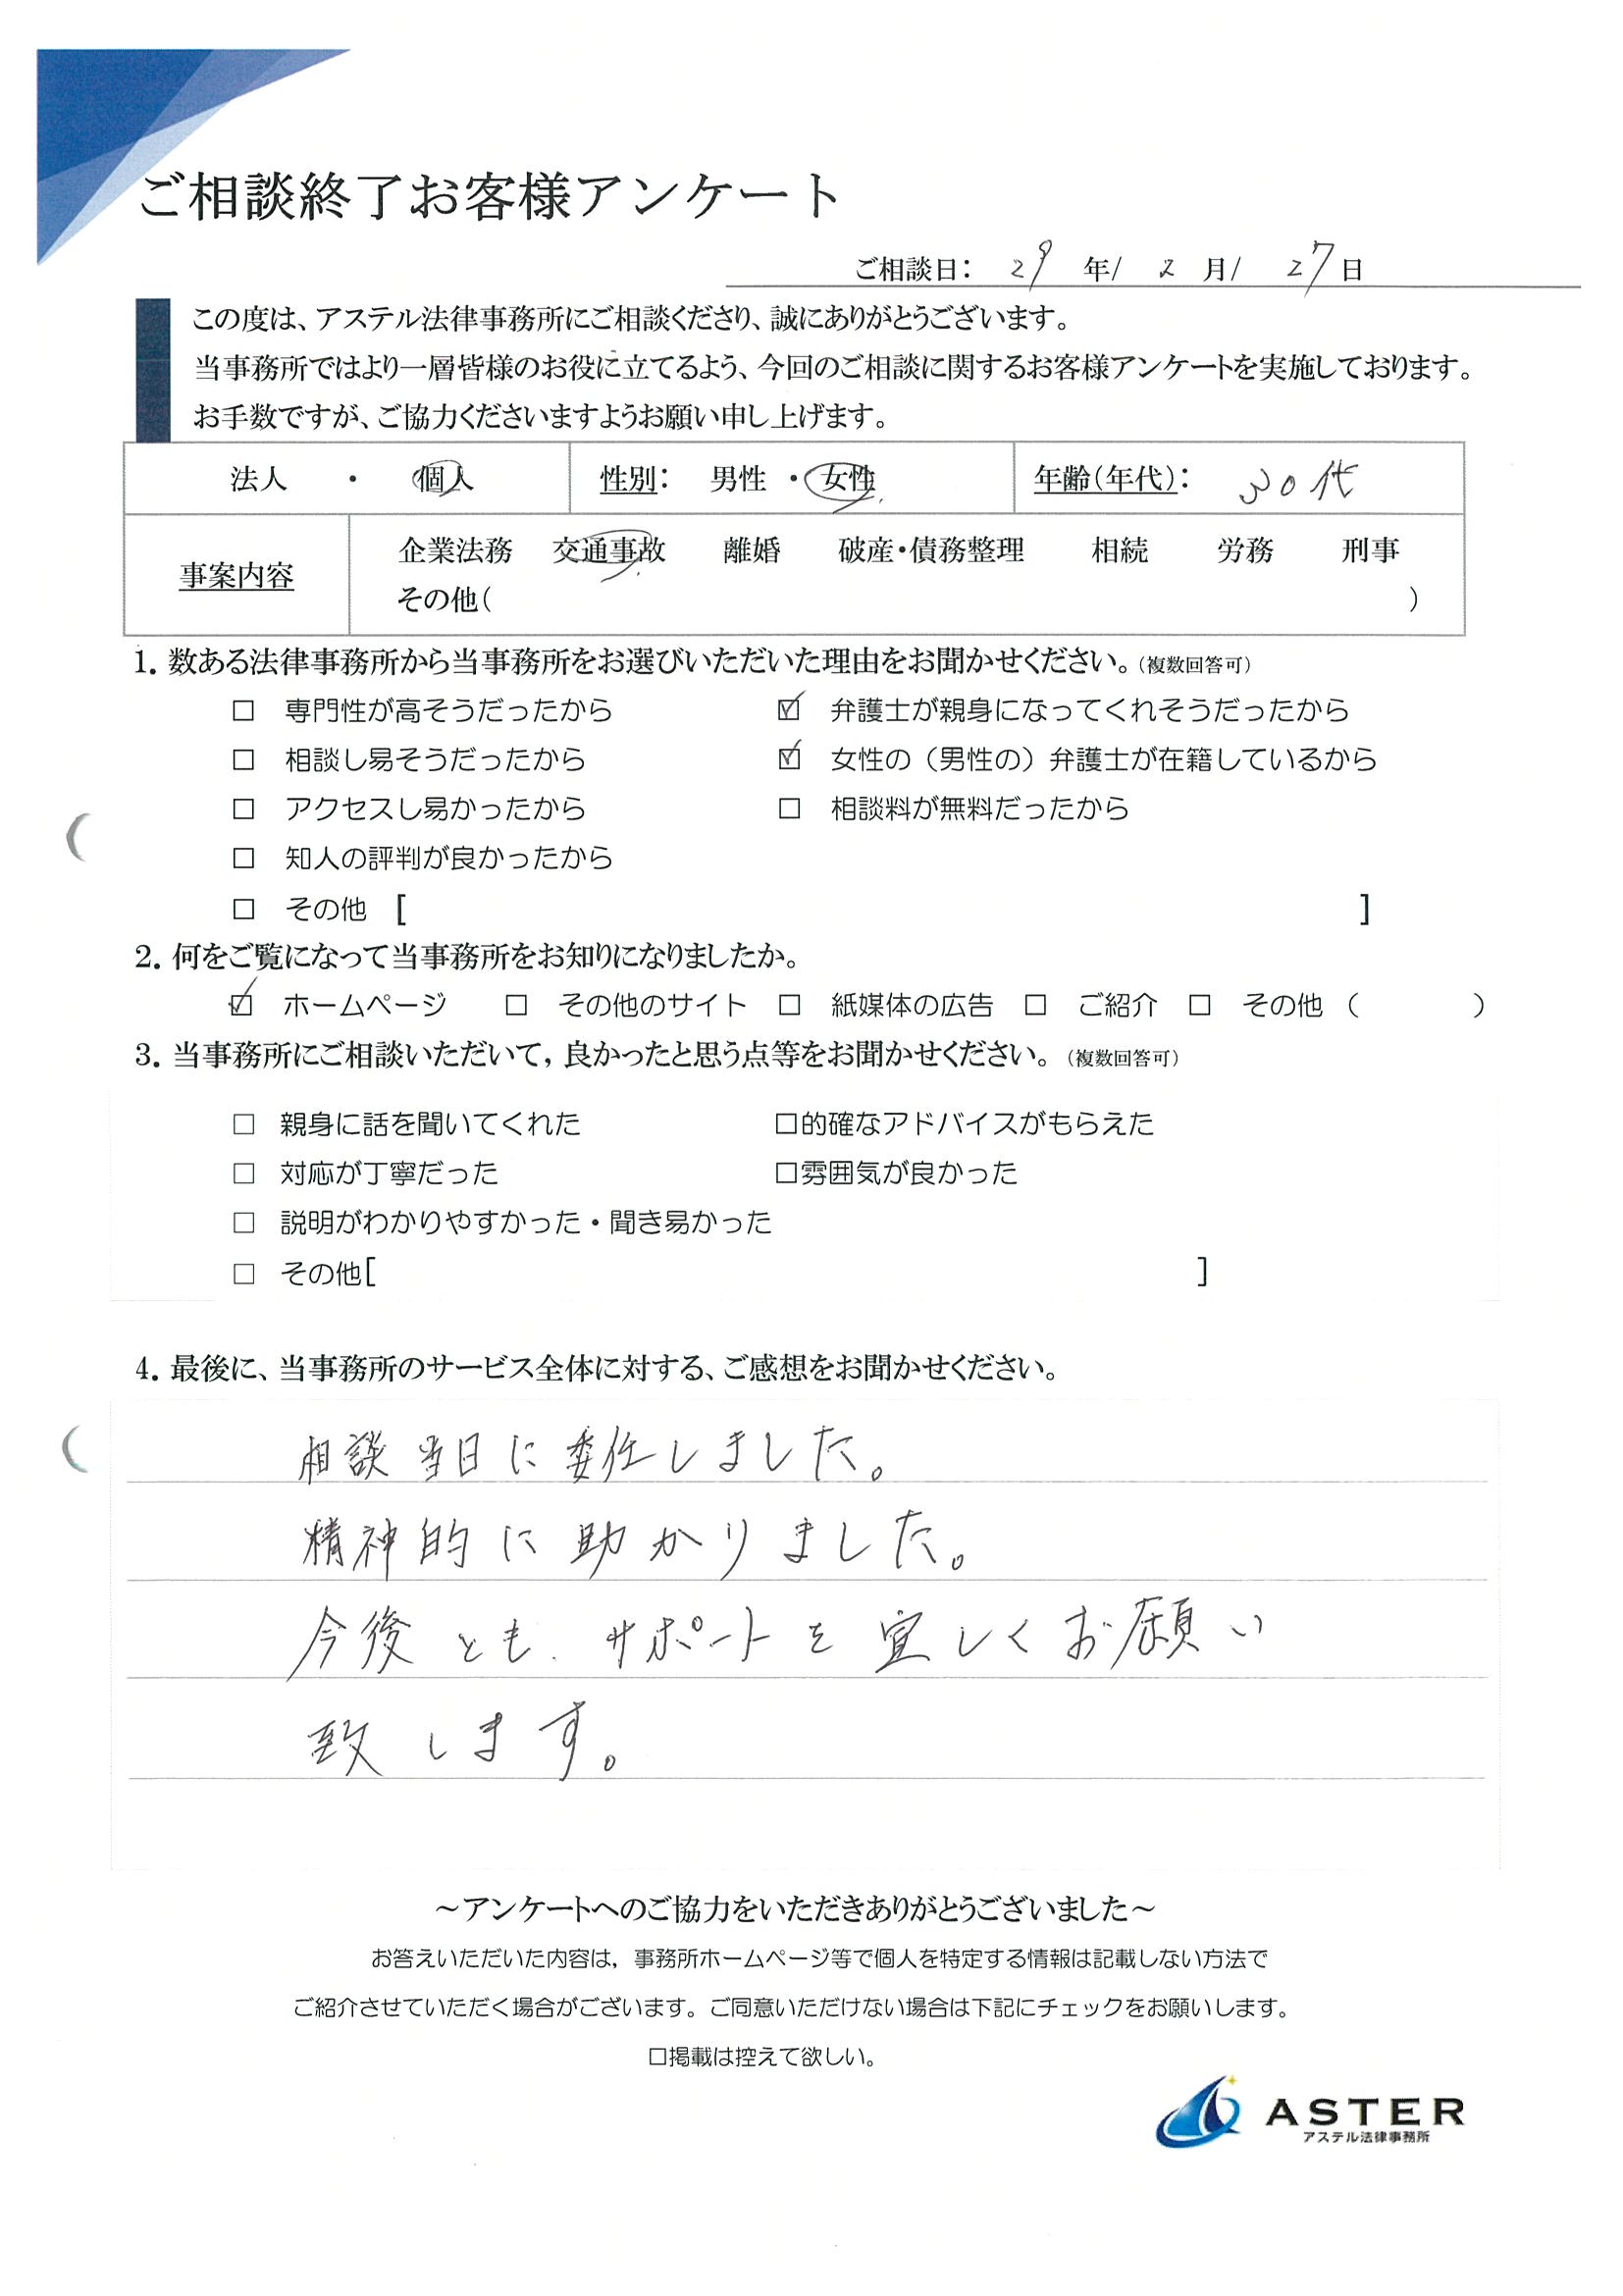 ご相談終了お客様アンケート
ご相談日： 29 年/ 2 月/ 27 日
この度は、アステル法律事務所にご相談くださり、誠にありがとうございます。
当事務所ではより一層皆様のお役に立てるよう、今回のご相談に関するお客様アンケートを実施しております。
お手数ですが、ご協力くださいますようお願い申し上げます。
法人 ・ 個人 性別： 男性 ・ 女性 年齢（年代）： 30代
事案内容 企業法務 交通事故 離婚 破産・債務整理 相続 労務 刑事
その他（ ）
1. 数ある法律事務所から当事務所をお選びいただいた理由をお聞かせください。（複数回答可）
□ 専門性が高そうだったから ☑ 弁護士が親身になってくれそうだったから
□ 相談し易そうだったから ☑ 女性の（男性の）弁護士が在籍しているから
□ アクセスし易かったから □ 相談料が無料だったから
□ 知人の評判が良かったから
□ その他 [ ]
2. 何をご覧になって当事務所をお知りになりましたか。
☑ ホームページ □ その他のサイト □ 紙媒体の広告 □ ご紹介 □ その他 （ ）
3. 当事務所にご相談いただいて，良かったと思う点等をお聞かせください。（複数回答可）
□ 親身に話を聞いてくれた □的確なアドバイスがもらえた
□ 対応が丁寧だった □雰囲気が良かった
□ 説明がわかりやすかった・聞き易かった
□ その他[ ]
4. 最後に、当事務所のサービス全体に対する、ご感想をお聞かせください。
相談当日に委任しました。
精神的に助かりました。
今後とも、サポートを宜しくお願い
致します。
～アンケートへのご協力をいただきありがとうございました～
お答えいただいた内容は，事務所ホームページ等で個人を特定する情報は記載しない方法で
ご紹介させていただく場合がございます。ご同意いただけない場合は下記にチェックをお願いします。
□掲載は控えて欲しい。
ASTER
アステル法律事務所